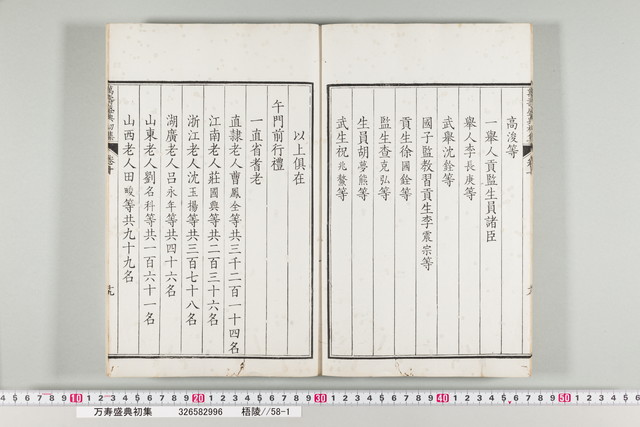 高浚等
一舉人貢監生員諸臣
舉人李長庚等
武舉沈銓等
國子監教習貢生李震宗等
貢生徐國銓等
監生查克弘等
生員胡夢熊等
武生祝兆鰲等
以上俱在
午門前行禮
一直省耆老
直隷老人曹鳳全等共三千二百一十四名
江南老人莊國典等共二百三十六名
浙江老人沈玉揚等共三百七十八名
湖廣老人呂永年等共四十六名
山東老人劉名科等共一百六十一名
山西老人田畯等共九十九名
万寿盛典初集 326582996 梧陵//58-1